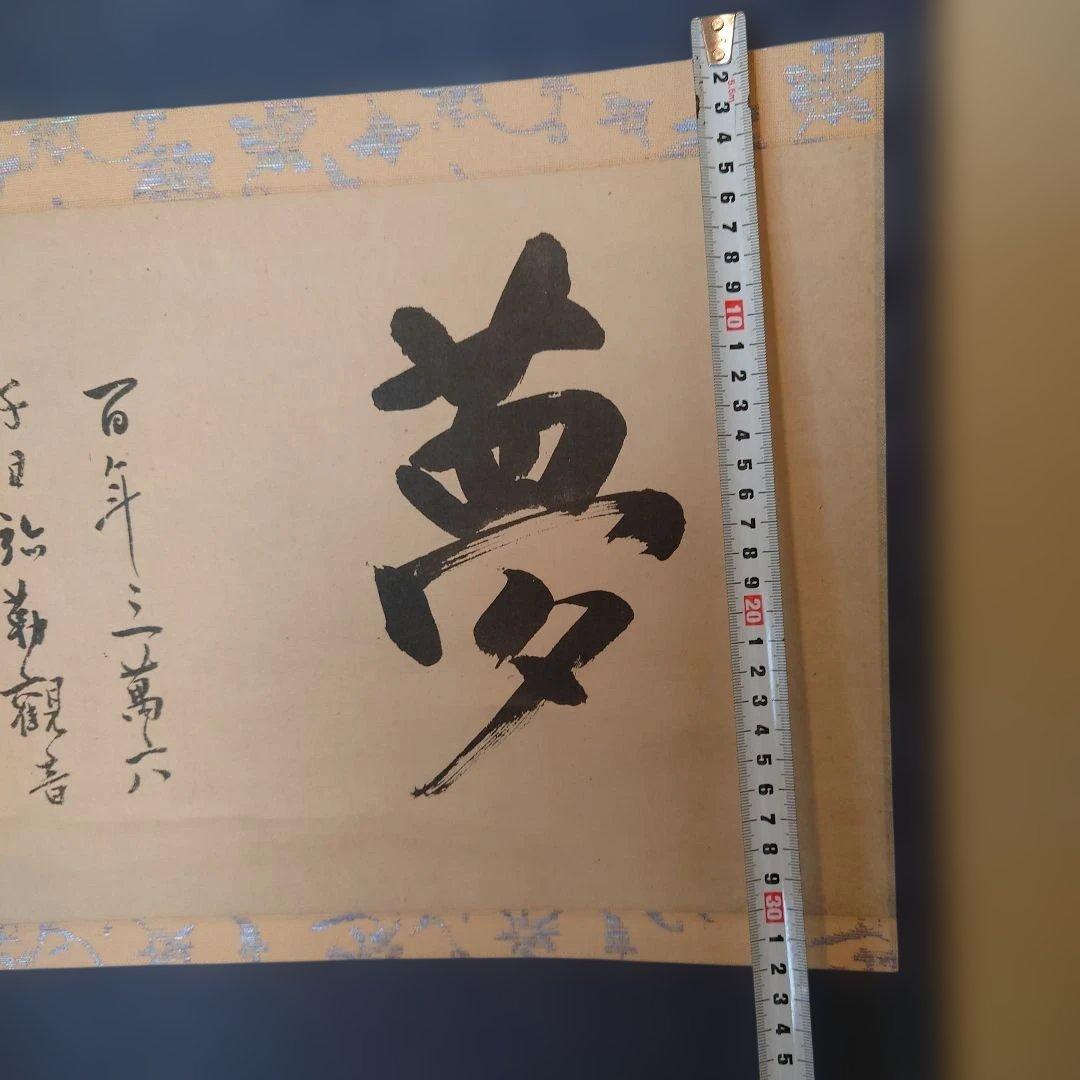 夢
百年三萬六
千日弥勒觀音
2 3 4 5 6 7 8 9 10 1 2 3 4 5 6 7 8 9 20 1 2 3 4 5 6 7 8 9 30 1 2 3 4 5
5.5m